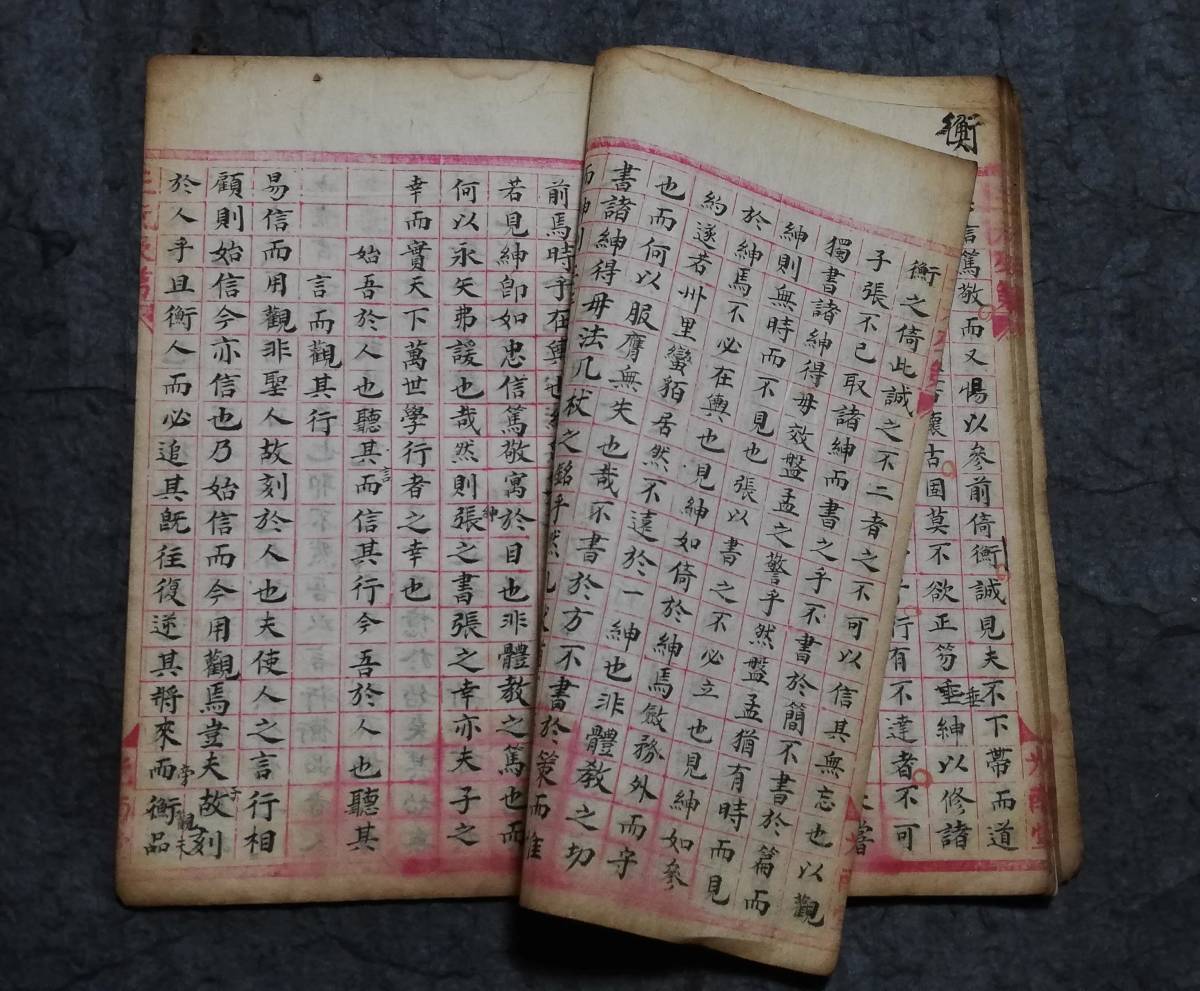 衡
言篤敬而又惕以參前倚衡誠見夫不下帶而道
垂
懷古固莫不欲正笏垂紳以修諸
行有不達者不可
嘗
衡之倚此誠之不二者之不可以信其無忘也以觀
子張不已取諸紳而書之乎不書於簡不書於篇而
獨書諸紳得毋效盤孟之警乎然盤孟猶有時而見
紳則無時而不見也張以書之不必立也見紳如參
於紳焉不必在輿也見紳如倚於紳焉斂務外而守
約遂若州里蠻貊居然不遠於一紳也非體教之切
也而何以服膺無失也哉不書於方不書於策而惟
書諸紳得毋法几杖之銘乎然
前焉時乎在輿也
若見紳卽如忠信篤敬寓於目也非體教之篤也而
紳
何以永矢弗諼也哉然則張之書張之幸亦夫子之
幸而實天下萬世學行者之幸也
言
始吾於人也聽其而信其行今吾於人也聽其
言而觀其行
易信而用觀非聖人故刻於人也夫使人之言行相
子
顧則始信今亦信也乃始信而今用觀焉豈夫故刻
於人乎且衡人而必追其既往復逆其將來而衡品